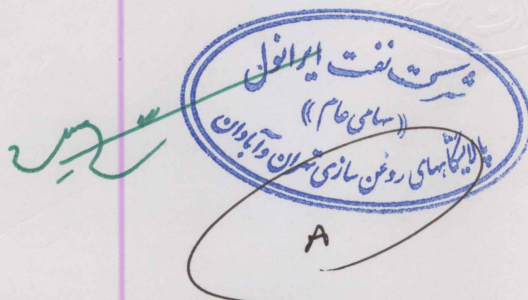 شرکت نفت ایرانول
(سهامی عام)
پالایشگاههای روغن سازی تهران و آبادان
A